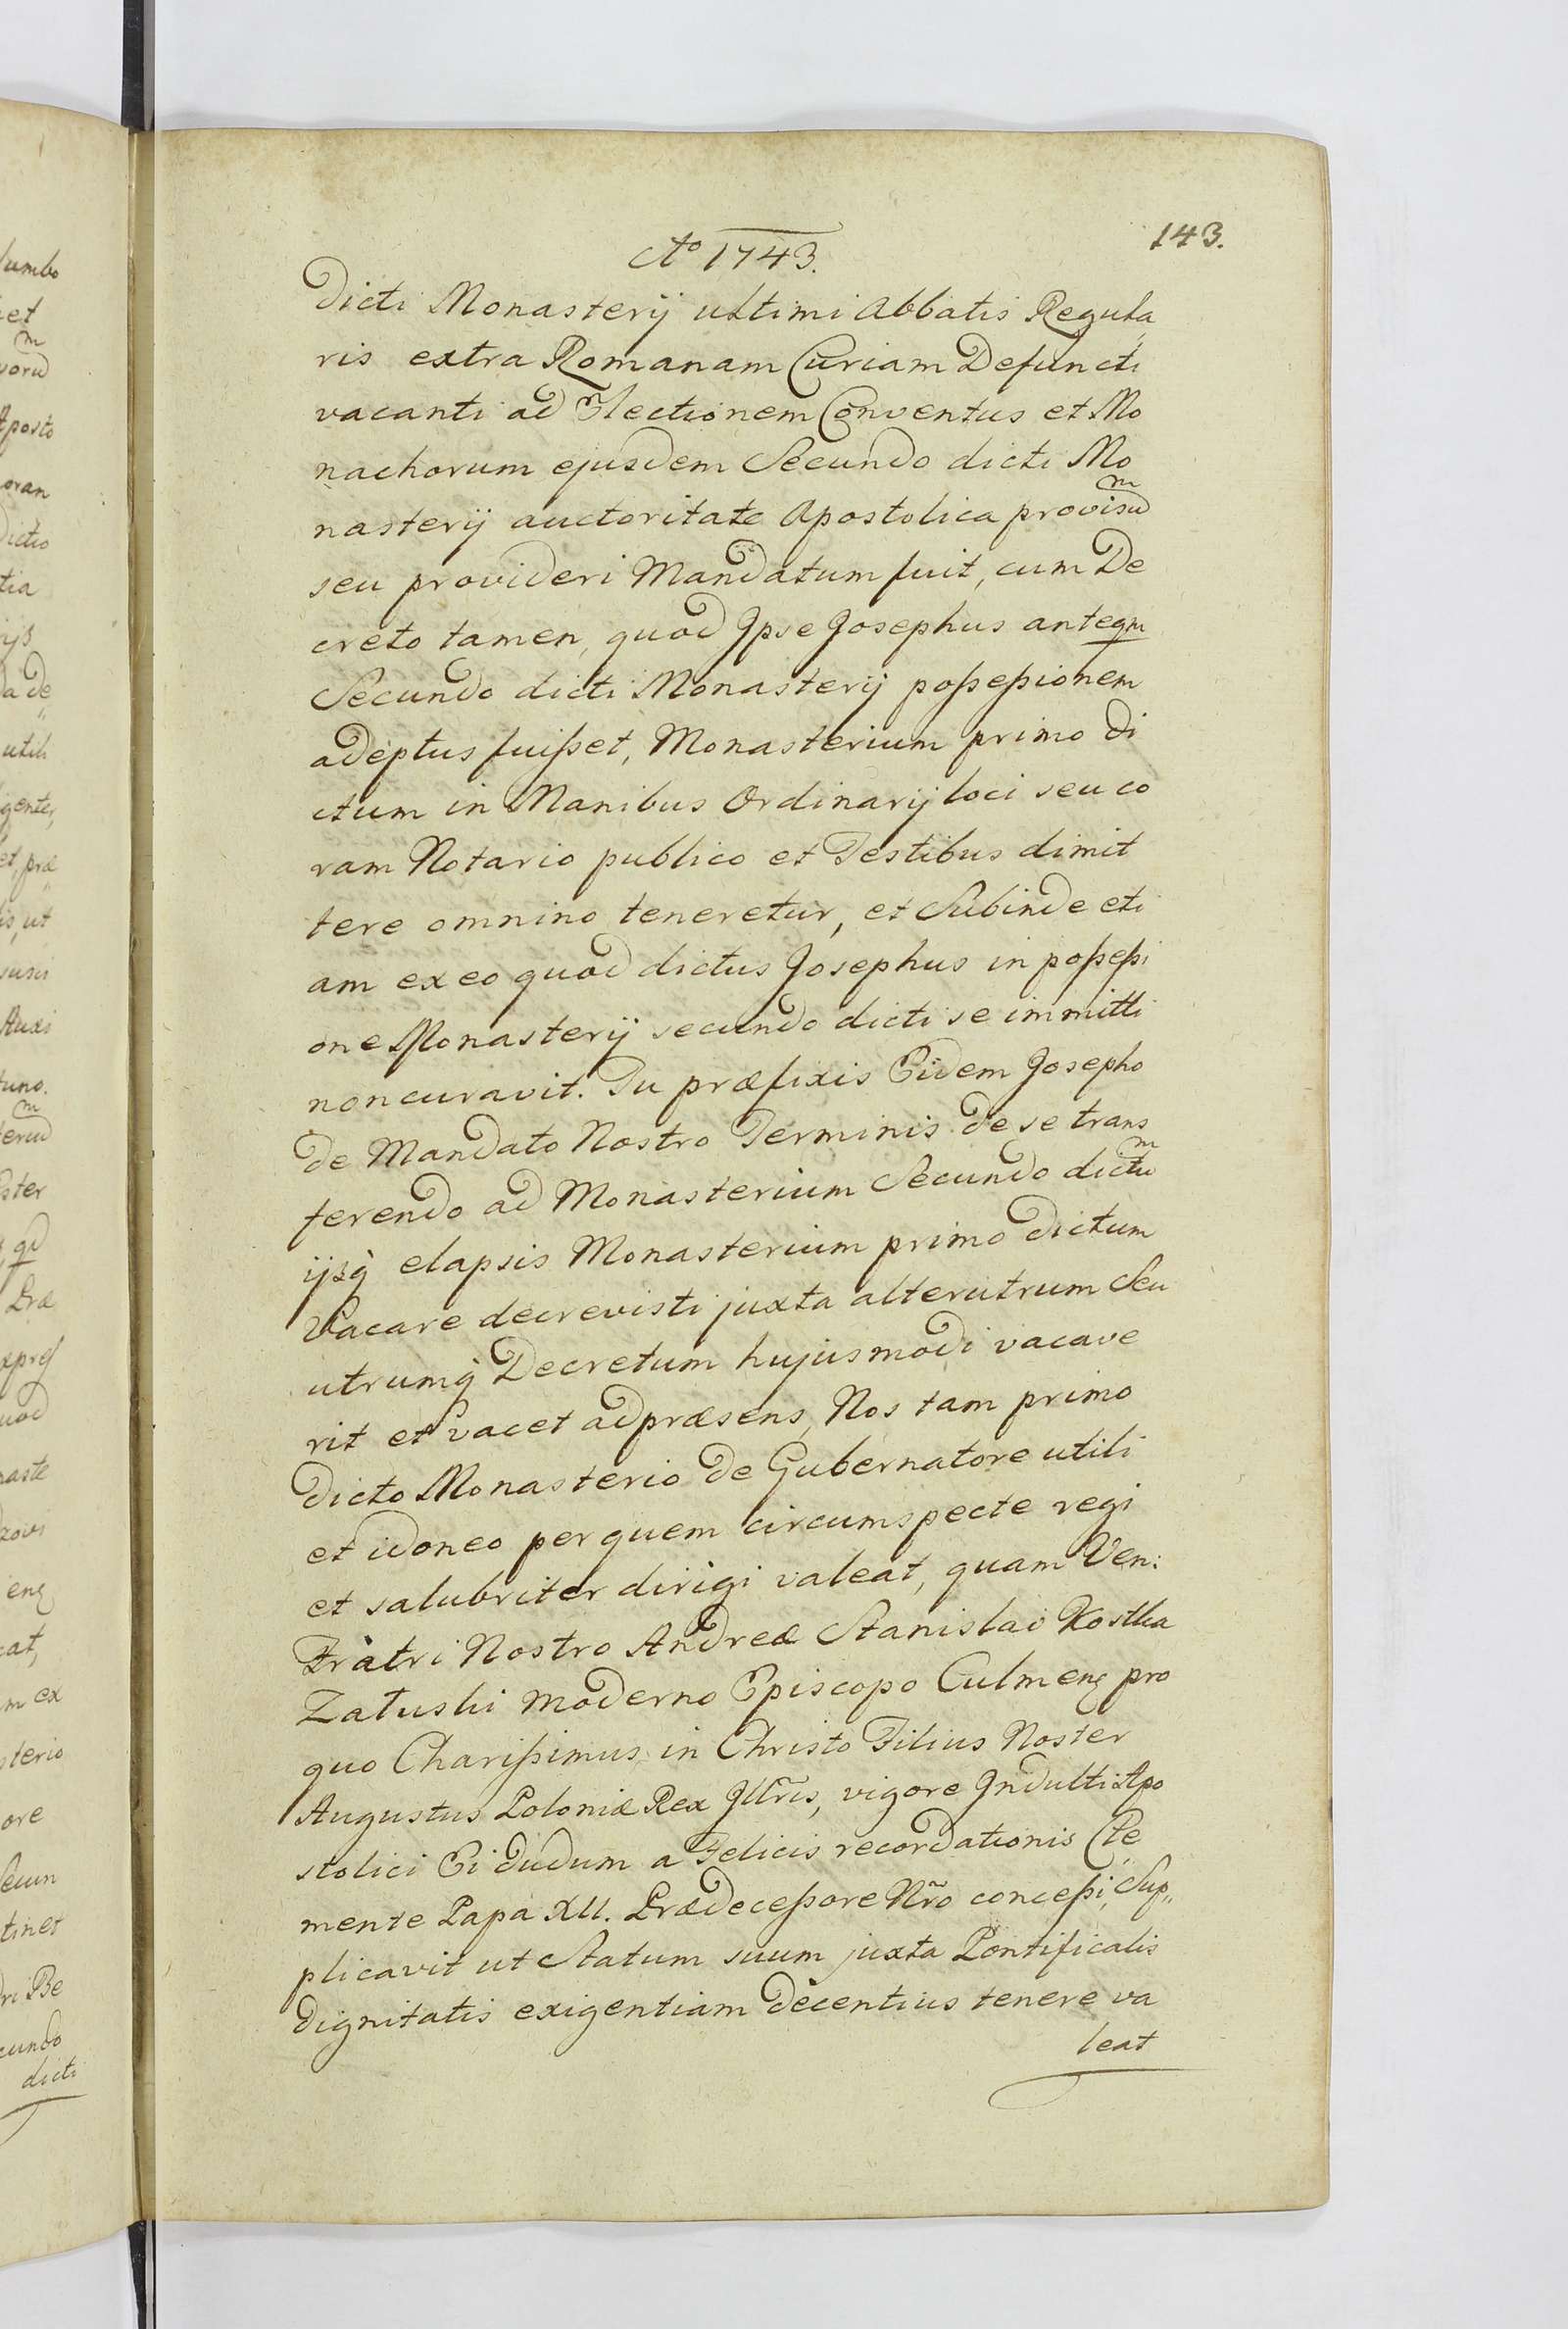 143.
Aº 1743.
Dicti Monasterij ultimi Abbatis Regula„
ris extra Romanam Curiam Defuncti
vacanti ad Electionem Conventus et Mo
nachorum ejusdem Secundo dicti Mo
nasterij auctoritate Apostolica provisũ
seu provideri Mandatum fuit, cum De
creto tamen, quod Ipse Josephus anteqm
Secundo dicti Monasterij poßeßionem
adeptus fuißet, Monasterium primo di
ctum in Manibus Ordinarij loci seu co
ram Notario publico et Testibus dimit
tere omnino teneretur, et Subinde eti
am ex eo quod dictus Josephus in poßeßi
one Monasterij secundo dicti se immitti
non curavit. Tu præfixis Eidem Josepho
de Mandato Nostro Terminis de se trans
ferendo ad Monasterium Secundo dictũ
ijsq̀ elapsis Monasterium primo dictum
Vacare decrevisti juxta alterutrum Seu
utrumq̀ Decretum hujusmodi vacave
rit et vacet ad præsens, Nos tam primo
dicto Monasterio de Gubernatore utili
et idoneo per quem circumspecte regi
et salubriter dirigi valeat, quam Ven:
Fratri Nostro Andreæ Stanislao Kostka
Zatuski moderno Episcopo Culmenę pro
quo Charißimus in Christo Filius Noster
Augustus Poloniæ Rex Illr̃is, vigore Indulti Apo
stolici Ei dudum a Felicis recordationis Cle„
mente Papa XII. Prædeceßore Nr̃o conceßi, Sup„
plicavit ut Statum suum juxta Pontificalis
dignitatis exigentiam decentius tenere va
leat